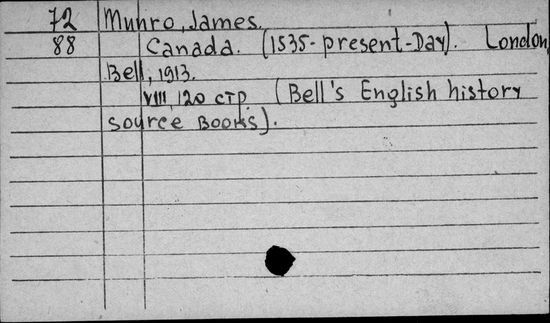 72 Munro, James.
88 Canada. (1535-present-Day). London,
Bell, 1913.
VIII, 120 стр. (Bell's English history
source Books).